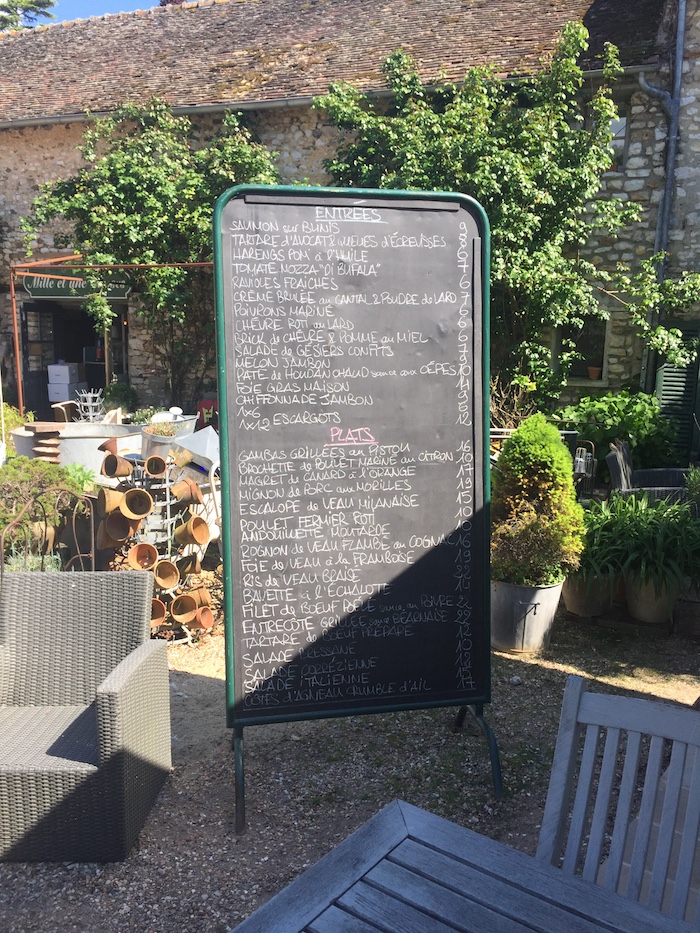 Mille et une
ENTRÉES
SAUMON sur BLINIS 9
TARTARE D'AVOCAT & QUEUES D'ÉCREVISSES 8
HARENGS POM' à L'HUILE 6
TOMATE MOZZA "DI BUFALA" 7
RAVIOLES FRAICHES 6
CRÈME BRULÉE au CANTAL & POUDRE de LARD 7
POIVRONS MARINÉ 6
CHÈVRE ROTI au LARD 6
BRICK de CHÈVRE & POMME au MIEL 6
SALADE de GÉSIERS CONFITS 7
MELON JAMBON 9
PATÉ de HOUDAN CHAUD sauce aux CÈPES 10
FOIE GRAS MAISON 14
CHIFFONNADE JAMBON 9
1x6 5
1x12 ESCARGOTS 12
PLATS
GAMBAS GRILLÉES au PISTOU 16
BROCHETTE de POULET MARINÉ au CITRON 10
MAGRET de CANARD à L'ORANGE 17
MIGNON de PORC aux MORILLES 19
ESCALOPE de VEAU MILANAISE 15
POULET FERMIER ROTI 10
ANDOUILLETTE MOUTARDE 10
ROGNON de VEAU FLAMBÉ au COGNAC 16
FOIE de VEAU à la FRAMBOISE 19
RIS de VEAU BRAISÉ 22
BAVETTE à L'ÉCHALOTE
FILET de BOEUF POÊLÉ sauce au POIVRE 22
ENTRECÔTE GRILLÉE sauce BEARNAISE 22
TARTARE de BOEUF PRÉPARÉ 12
SALADE BRESSANE 10
SALADE CORRÉZIENNE 13
SALADE ITALIENNE
CÔTES D'AGNEAU CRUMBLE D'AIL 17